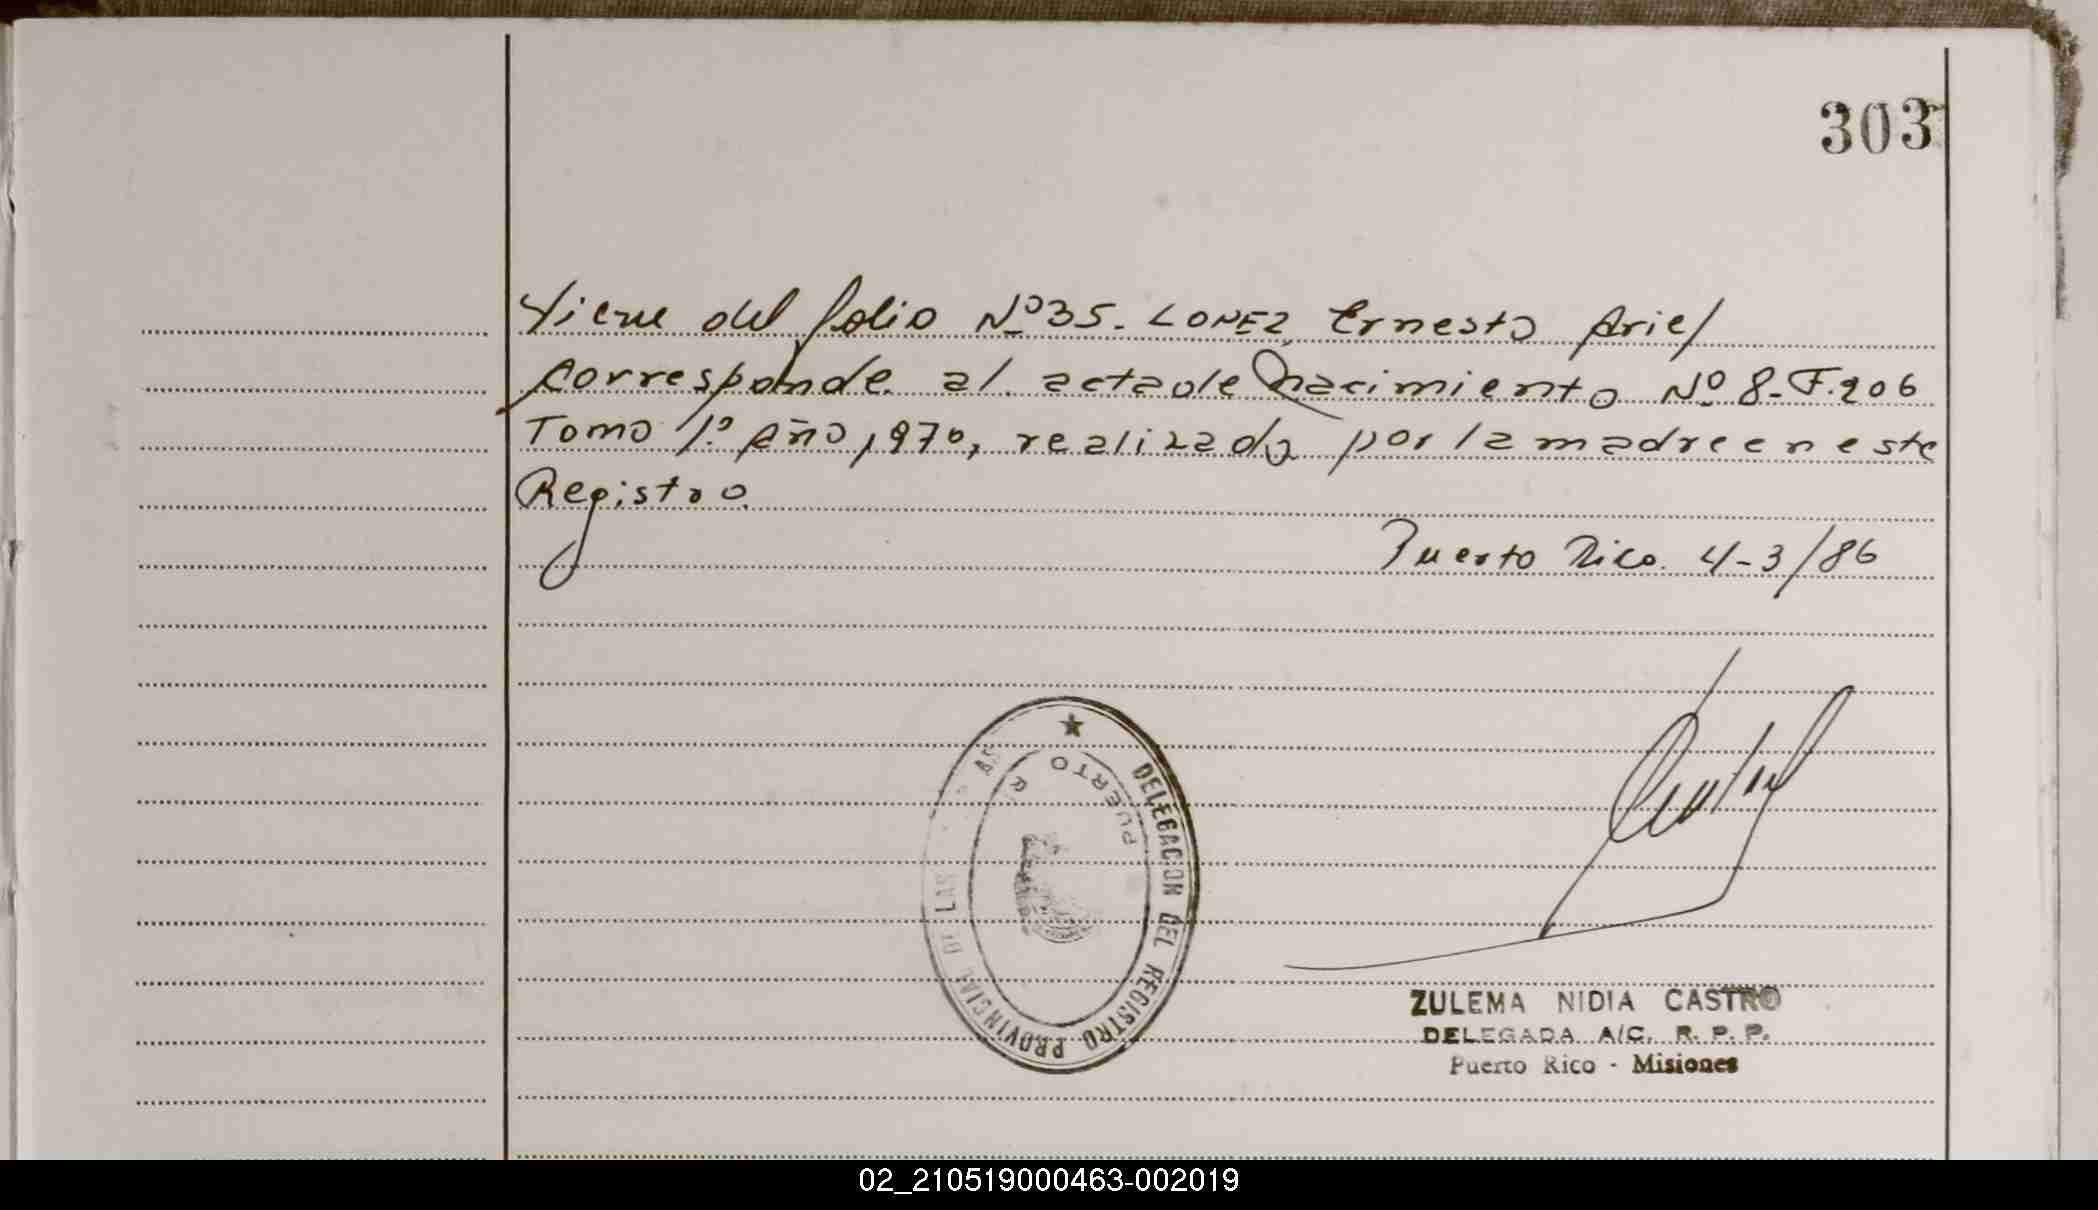 303
Viene del folio Nº 35. LOPEZ, Ernesto Ariel
corresponde al acta de Nacimiento Nº 8-F.206
Tomo 1º Año 1970, realizado por la madre en este
Registro.
Puerto Rico. 4-3/86
★
DELEGACION DEL REGISTRO PROVINCIAL DE LAS AS
PUERTO R
ZULEMA NIDIA CASTRO
DELEGADA A/C. R. P. P.
Puerto Rico - Misiones
02_210519000463-002019